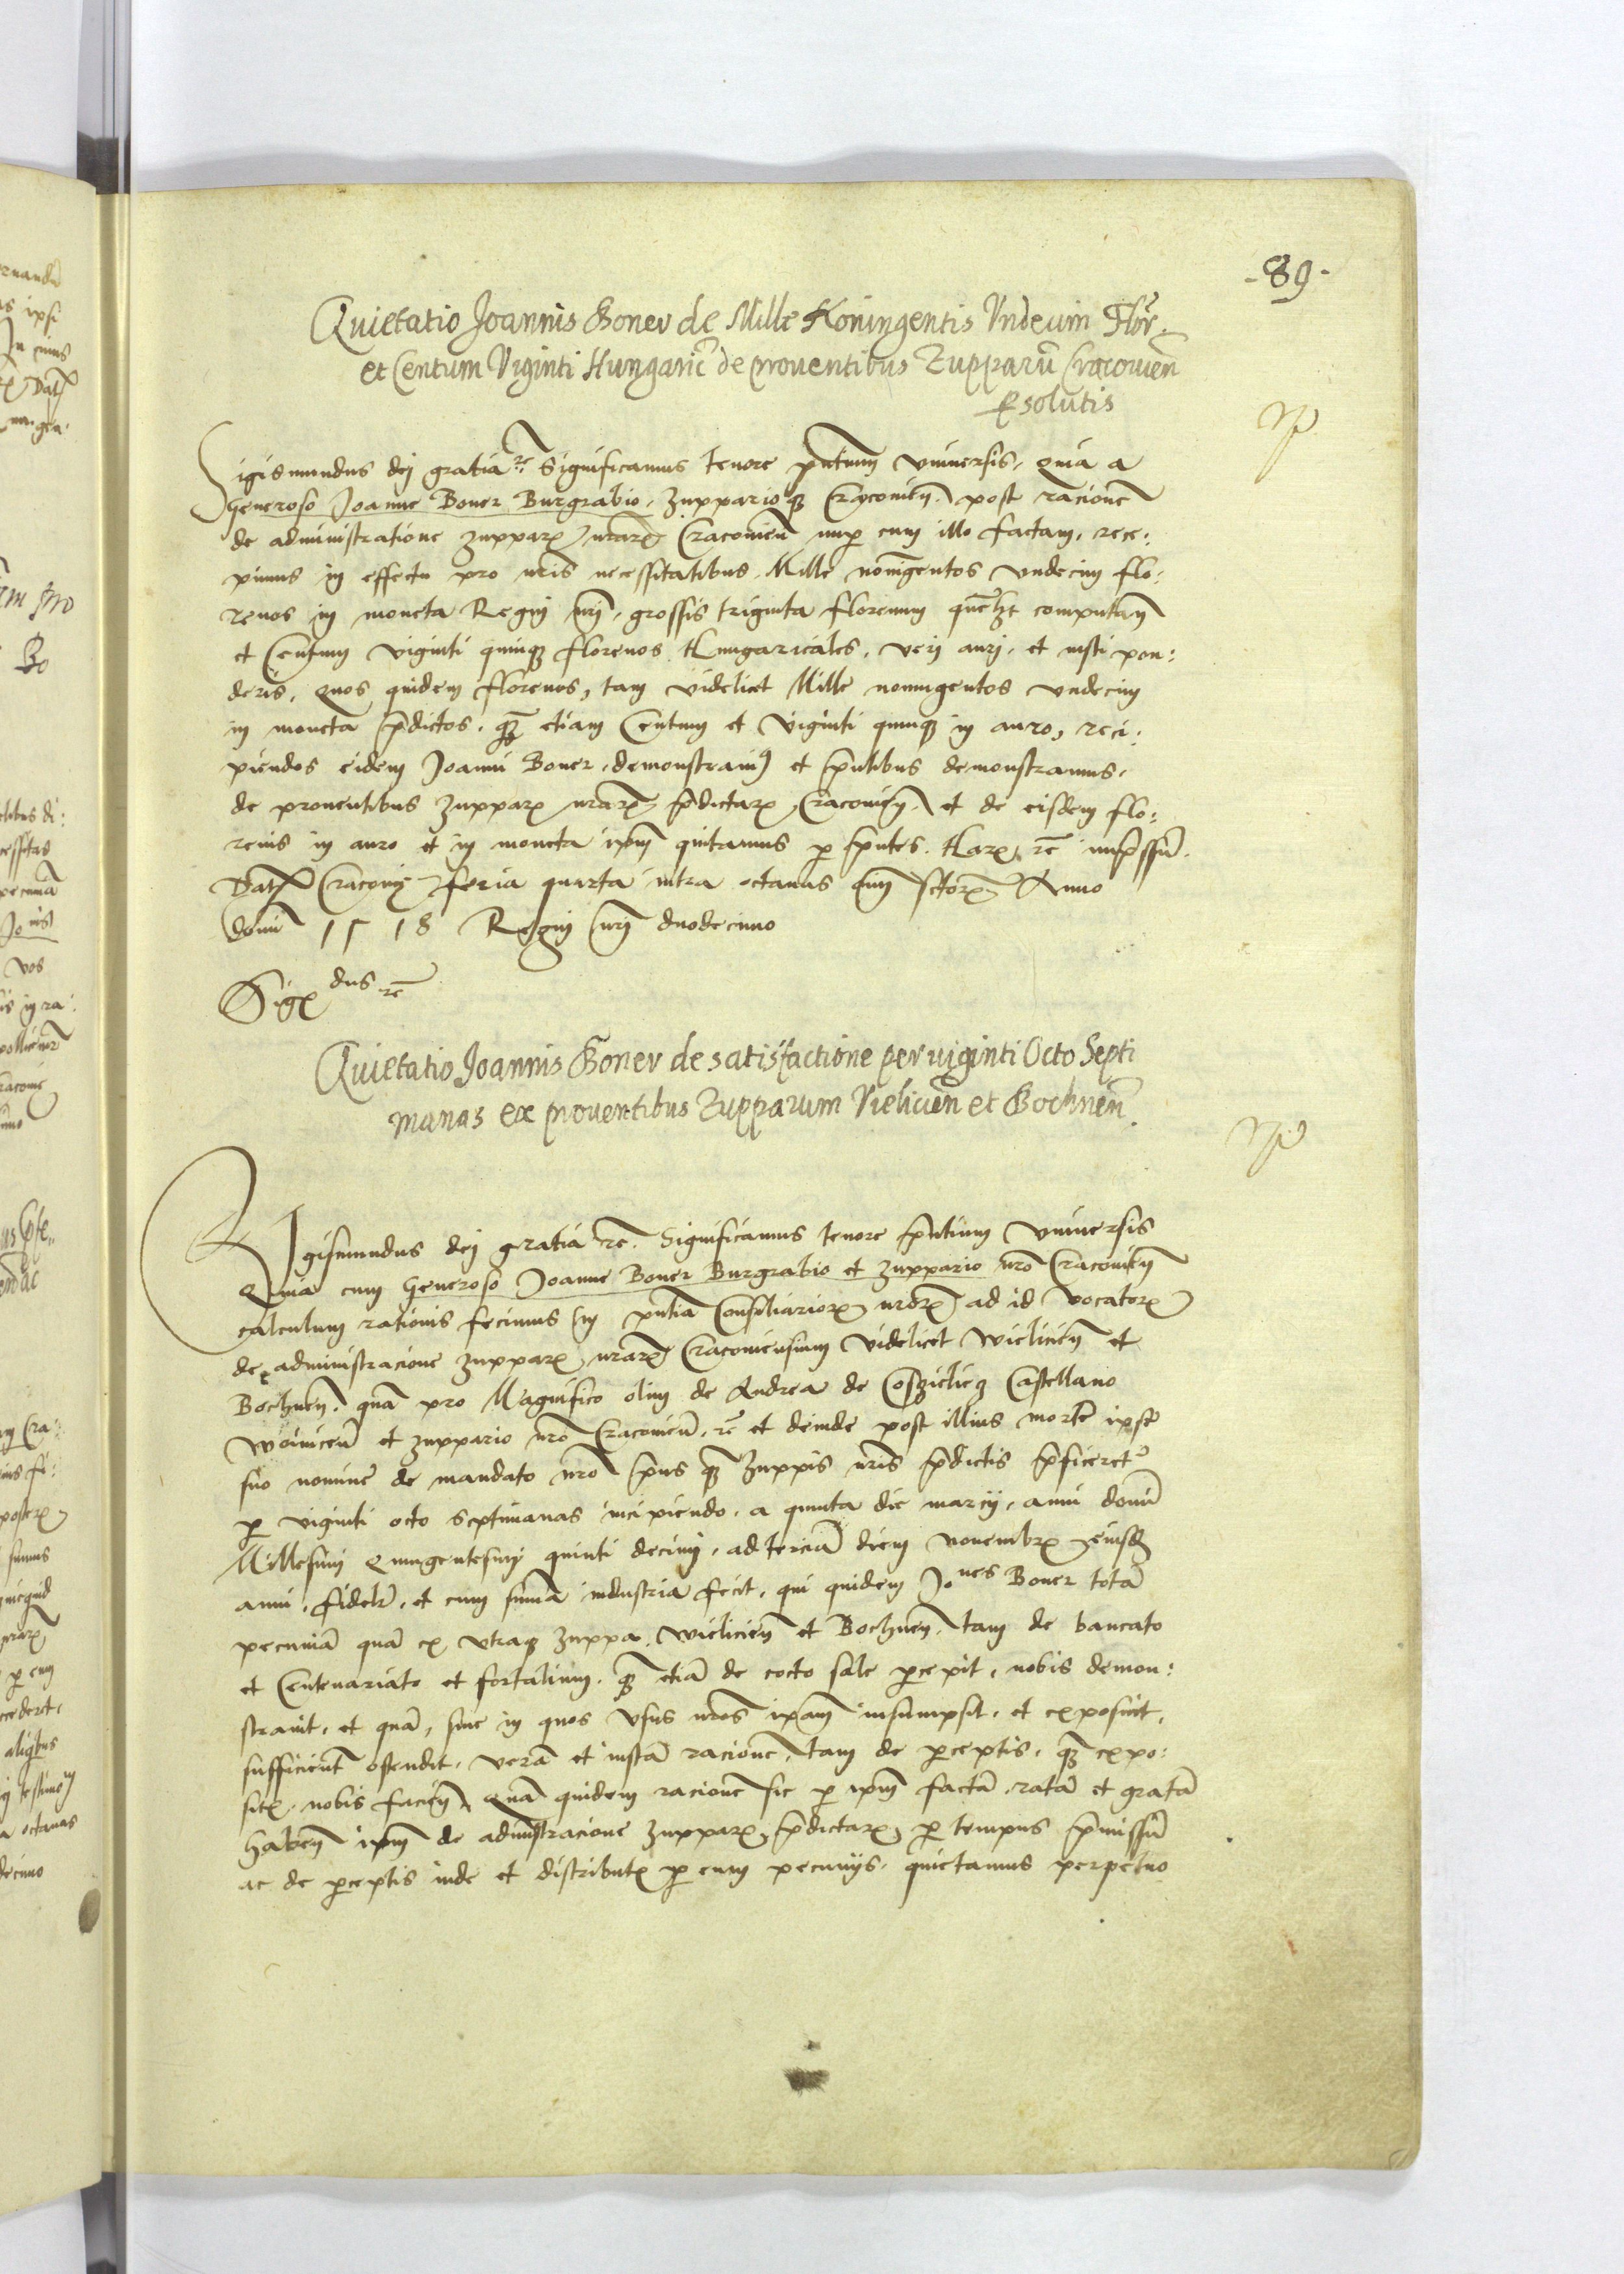 -89-
Quietatio Joannis Boner de Mille Noningentis Undecim Flor.
et Centum Viginti Hungaric de proventibus Zupparũ Cracovien
exsolutis
Sigismundus dej gratia rc Significamus tenore pntium vniuersis, quia a
Generoso Joanne Boner Burgrabio, zupparioq Cracouien. post racione
de administratione zuppar nrar Cracouien nup cum illo factam, rece:
pimus in effectu pro nris necessitatibus Mille noningentos vndecim flo:
renos in moneta Regni nri, grossis triginta florenum quelibet computan
et Centum viginti quinq florenos Hungaricales, veri auri, et iusti pon:
deris, quos quidem florenos, tam videlicet Mille nonungentos vndecim
in moneta pdictos, qm etiam Centum et viginti quinq in auro, reci:
piendos eidem Joanni Boner demonstrauim9 et pntibus demonstramus,
de prouentibus zuppar nrar pdictar Cracouien, et de eisdem flo:
renis in auro et in moneta ipm quitamus p pntes. Har rc imp̃ssũ.
Dat Cracouie feria quarta intra octauas omj sctor Anno
domi 1518 Regni nri duodecimo
Sigdus rc
Quietatio Joannis Boner de satisfactione per viginti Octo Septi
manas ex proventibus Zupparum Vieliciẽn et Bochnẽn.
Sigismundus dej gratia rc. Significamus tenore pntium vniuersis
Quia cum Generoso Joanne Boner Burgrabio et zuppario nro Cracouien
calculum rationis fecimus in pntia Consiliarior nror ad id vocator
de administracione zuppar nrar Cracouiensium videlicet Wielicien et
Bochnen. quã pro Magnifico olim de Andrea de Coszielicz Castellano
Woinicen et zuppario nro Cracouien, rc et deinde post illius morte ipse
suo nomine de mandato nro pus qm zuppis nris pdictis pficeret
p viginti octo septimanas incipiendo, a quinta die marcij, anni domi
Millesimi quingentesimi quinti decimi, ad terciã diem nouembr eiusd
anni, fidelr, et cum suma industria fecit, qui quidem Jones Boner totã
pecuniã quã ex vtraq zuppa, Wielicien et Bochnen, tam de bancato
et Centenariato et fortalium, qm etiã de cocto sale pcepit, nobis demon:
strauit, et quã, siue in quos vsus nros ipam insumpsit, et exposuit,
sufficient ostendit, verã et iustã racione, tam de pceptis, qm expo:
sit, nobis facien, Quã quidem racione sic p ipm factã, ratã et gratã
haben ipm de adminstracione zuppar pdictar p tempus pmissũ
ac de pceptis inde et distribut p eum pecunijs, quietamus perpetuo